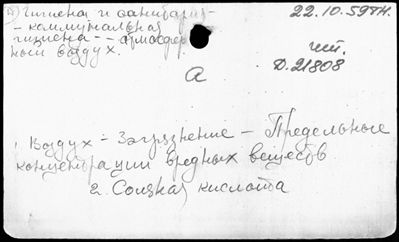 Гигиена и санитария -
- коммунальная
гигиена - - Атмосфер
ный воздух.
22.10.59гн.
чит.
Д.21808
а
1 Воздух - Загрязнение - Предельные
концентрации вредных веществ
2. Соляная кислота